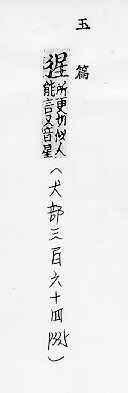 玉篇
猩所更切似人
能言又音星
(犬部三百六十四 P335)